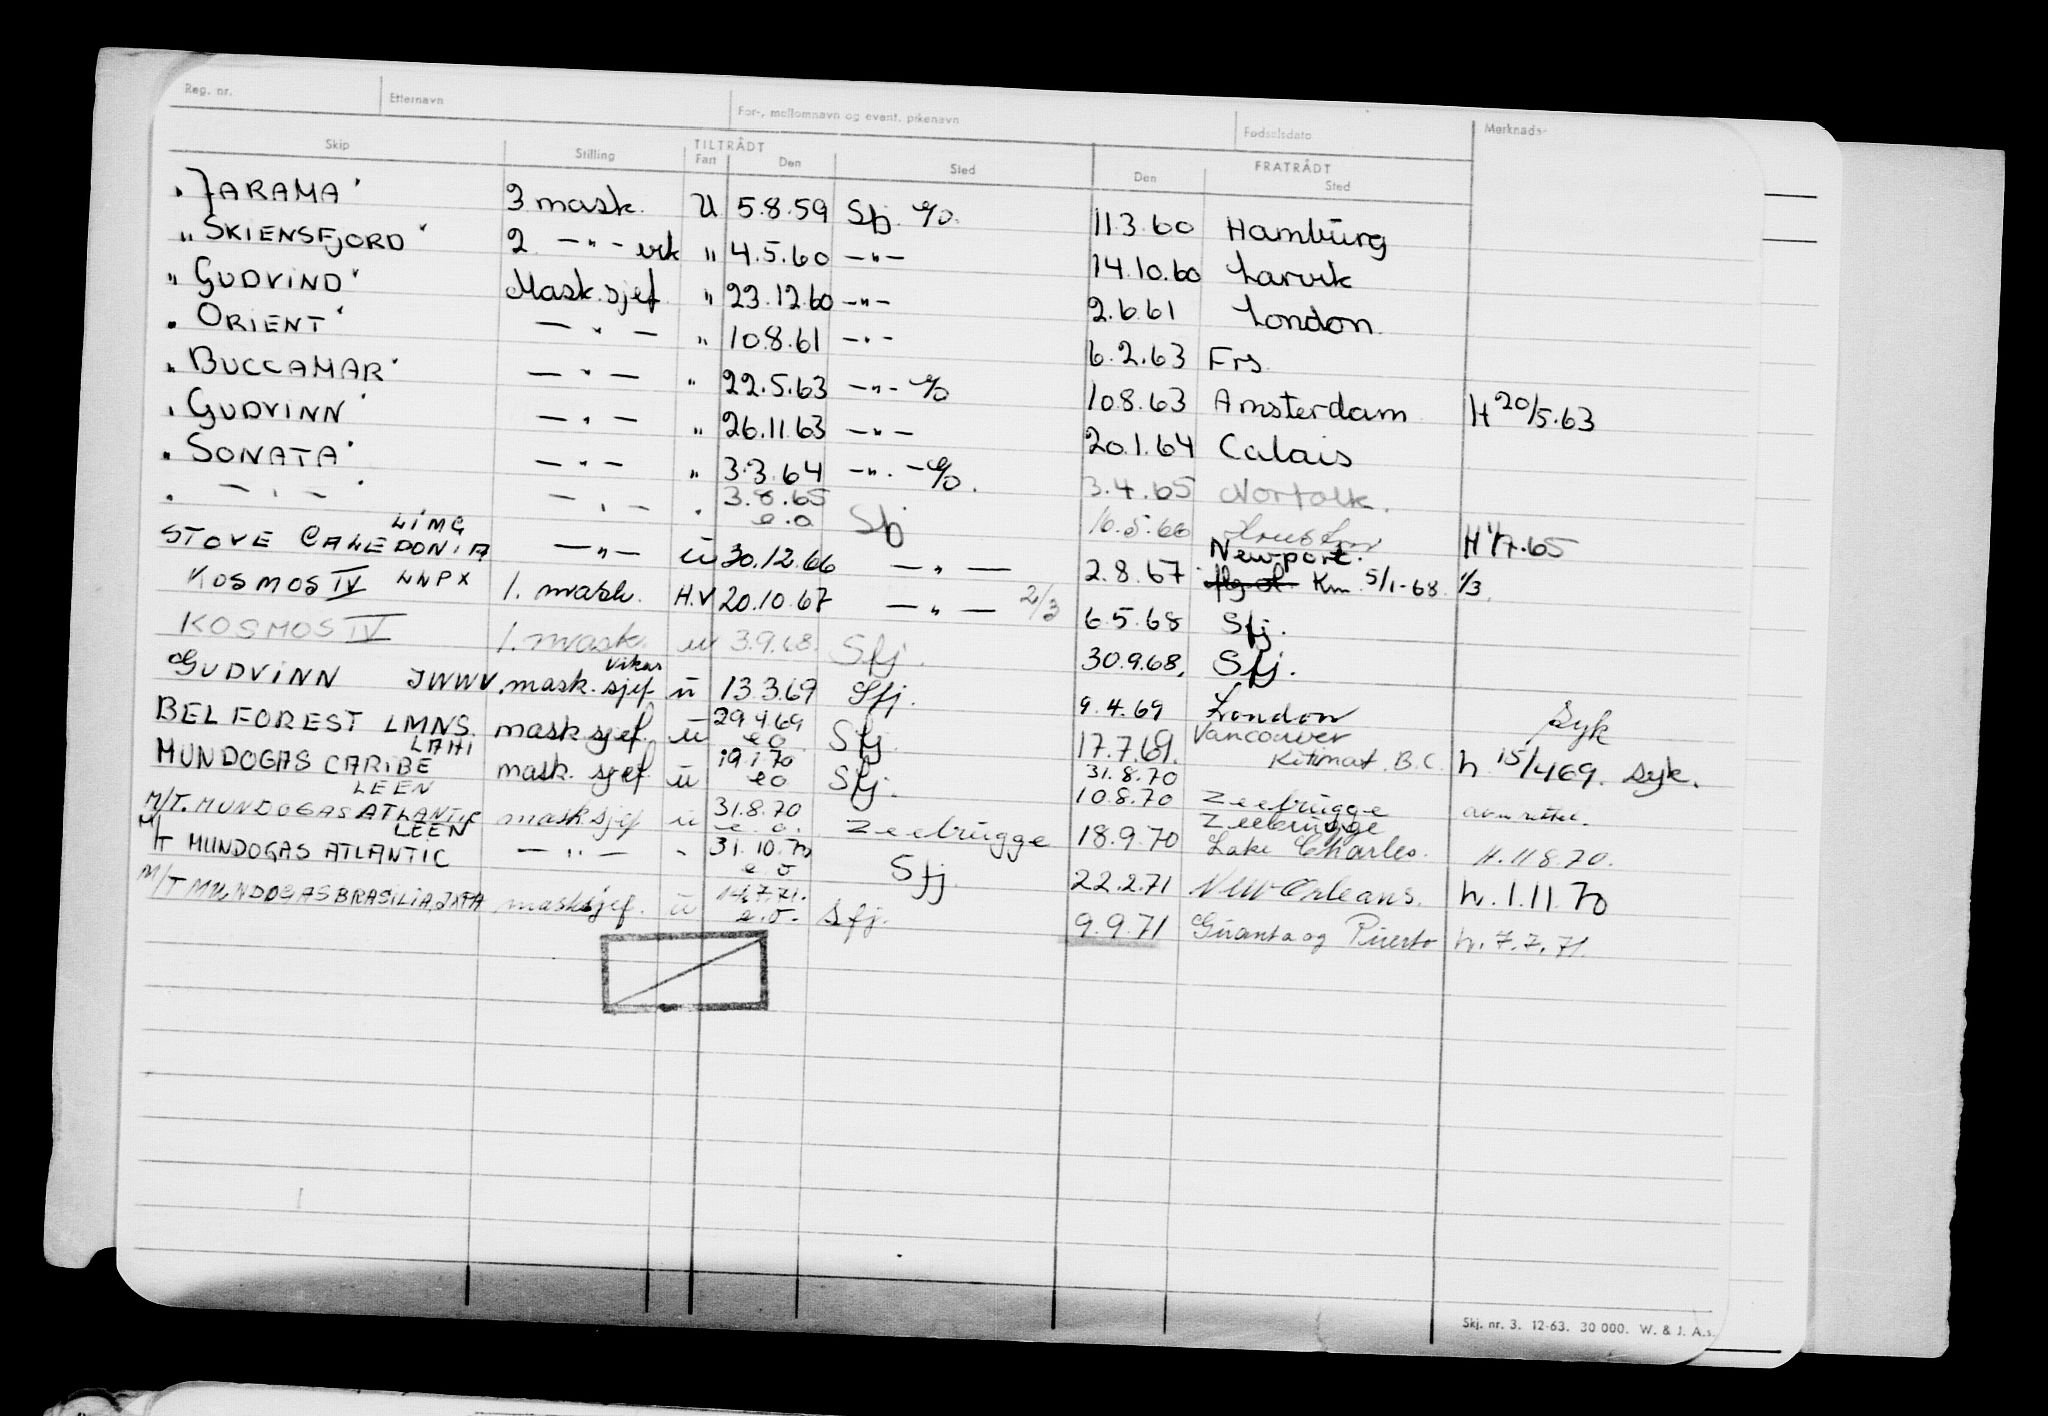 Reg. nr. Etternavn For-, mellomnavn og event. pikenavn Fødselsdato Merknads-
Skip Stilling TILTRÅDT Fart Den Sted FRATRÅDT Den Sted
"JARAMA" 3 mask. U 5.8.59 Sfj. e/o. 11.3.60 Hamburg
"SKIENSFJORD" 2 —"— vik " 4.5.60 —"— 14.10.60 Larvik
"GUDVIND" Mask.sjef " 23.12.60 —"— 2.6.61 London
"ORIENT" —"— " 10.8.61 —"— 6.2.63 Frs.
"BUCCAMAR" —"— " 22.5.63 —"— e/o 10.8.63 Amsterdam H 20/5.63
"GUDVINN" —"— " 26.11.63 —"— 20.1.64 Calais
"SONATA" —"— " 3.3.64 —"— e/o. 3.4.65 Norfolk.
" —"— " —"— " 3.8.65 e.o Sfj 16.5.66 Houston H 1/7.65
STOVE CALEDONIA LIMG —"— ü 30.12.66 —"— 2.8.67 Newport.
KOSMOS IV LNPX 1. mask. H.V 20.10.67 —"— 2/3 6.5.68 Sfj. Km 5/1-68 1/3.
KOSMOS IV 1. mask. u 3.9.68. Sfj. 30.9.68. Sfj.
GUDVINN JWWV. mask.sjef vikar ü 13.3.69 Sfj. 9.4.69 London Syk
BELFOREST LMNS. mask sjef. ü 29.4.69 eo Sfj. 17.7.69. Vancouver Kitimat. B.C. h 15/4.69. Syk.
MUNDOGAS CARIBE LAHI mask. sjef ü 19.1.70 eo Sfj. 31.8.70 10.8.70 Zeebrugge
M/T. MUNDOGAS ATLANTIC LEEN mask sjef ü 31.8.70 e.o. Zeebrugge 18.9.70 Zeebrugge Lake Charles. H. 11 8.70.
M/T MUNDOGAS ATLANTIC LEEN —"— " 31.10.70 e o Sfj. 22.2.71 New Orleans. h. 1.11 70
M/T MUNDOGAS BRASILIA, JXTA masksjef. ü 14.7.71. e.o. Sfj. 9.9.71 Guanta og Puerto h. 7.7.71.
Skj. nr. 3. 12-63. 30 000. W. & J. A.s.